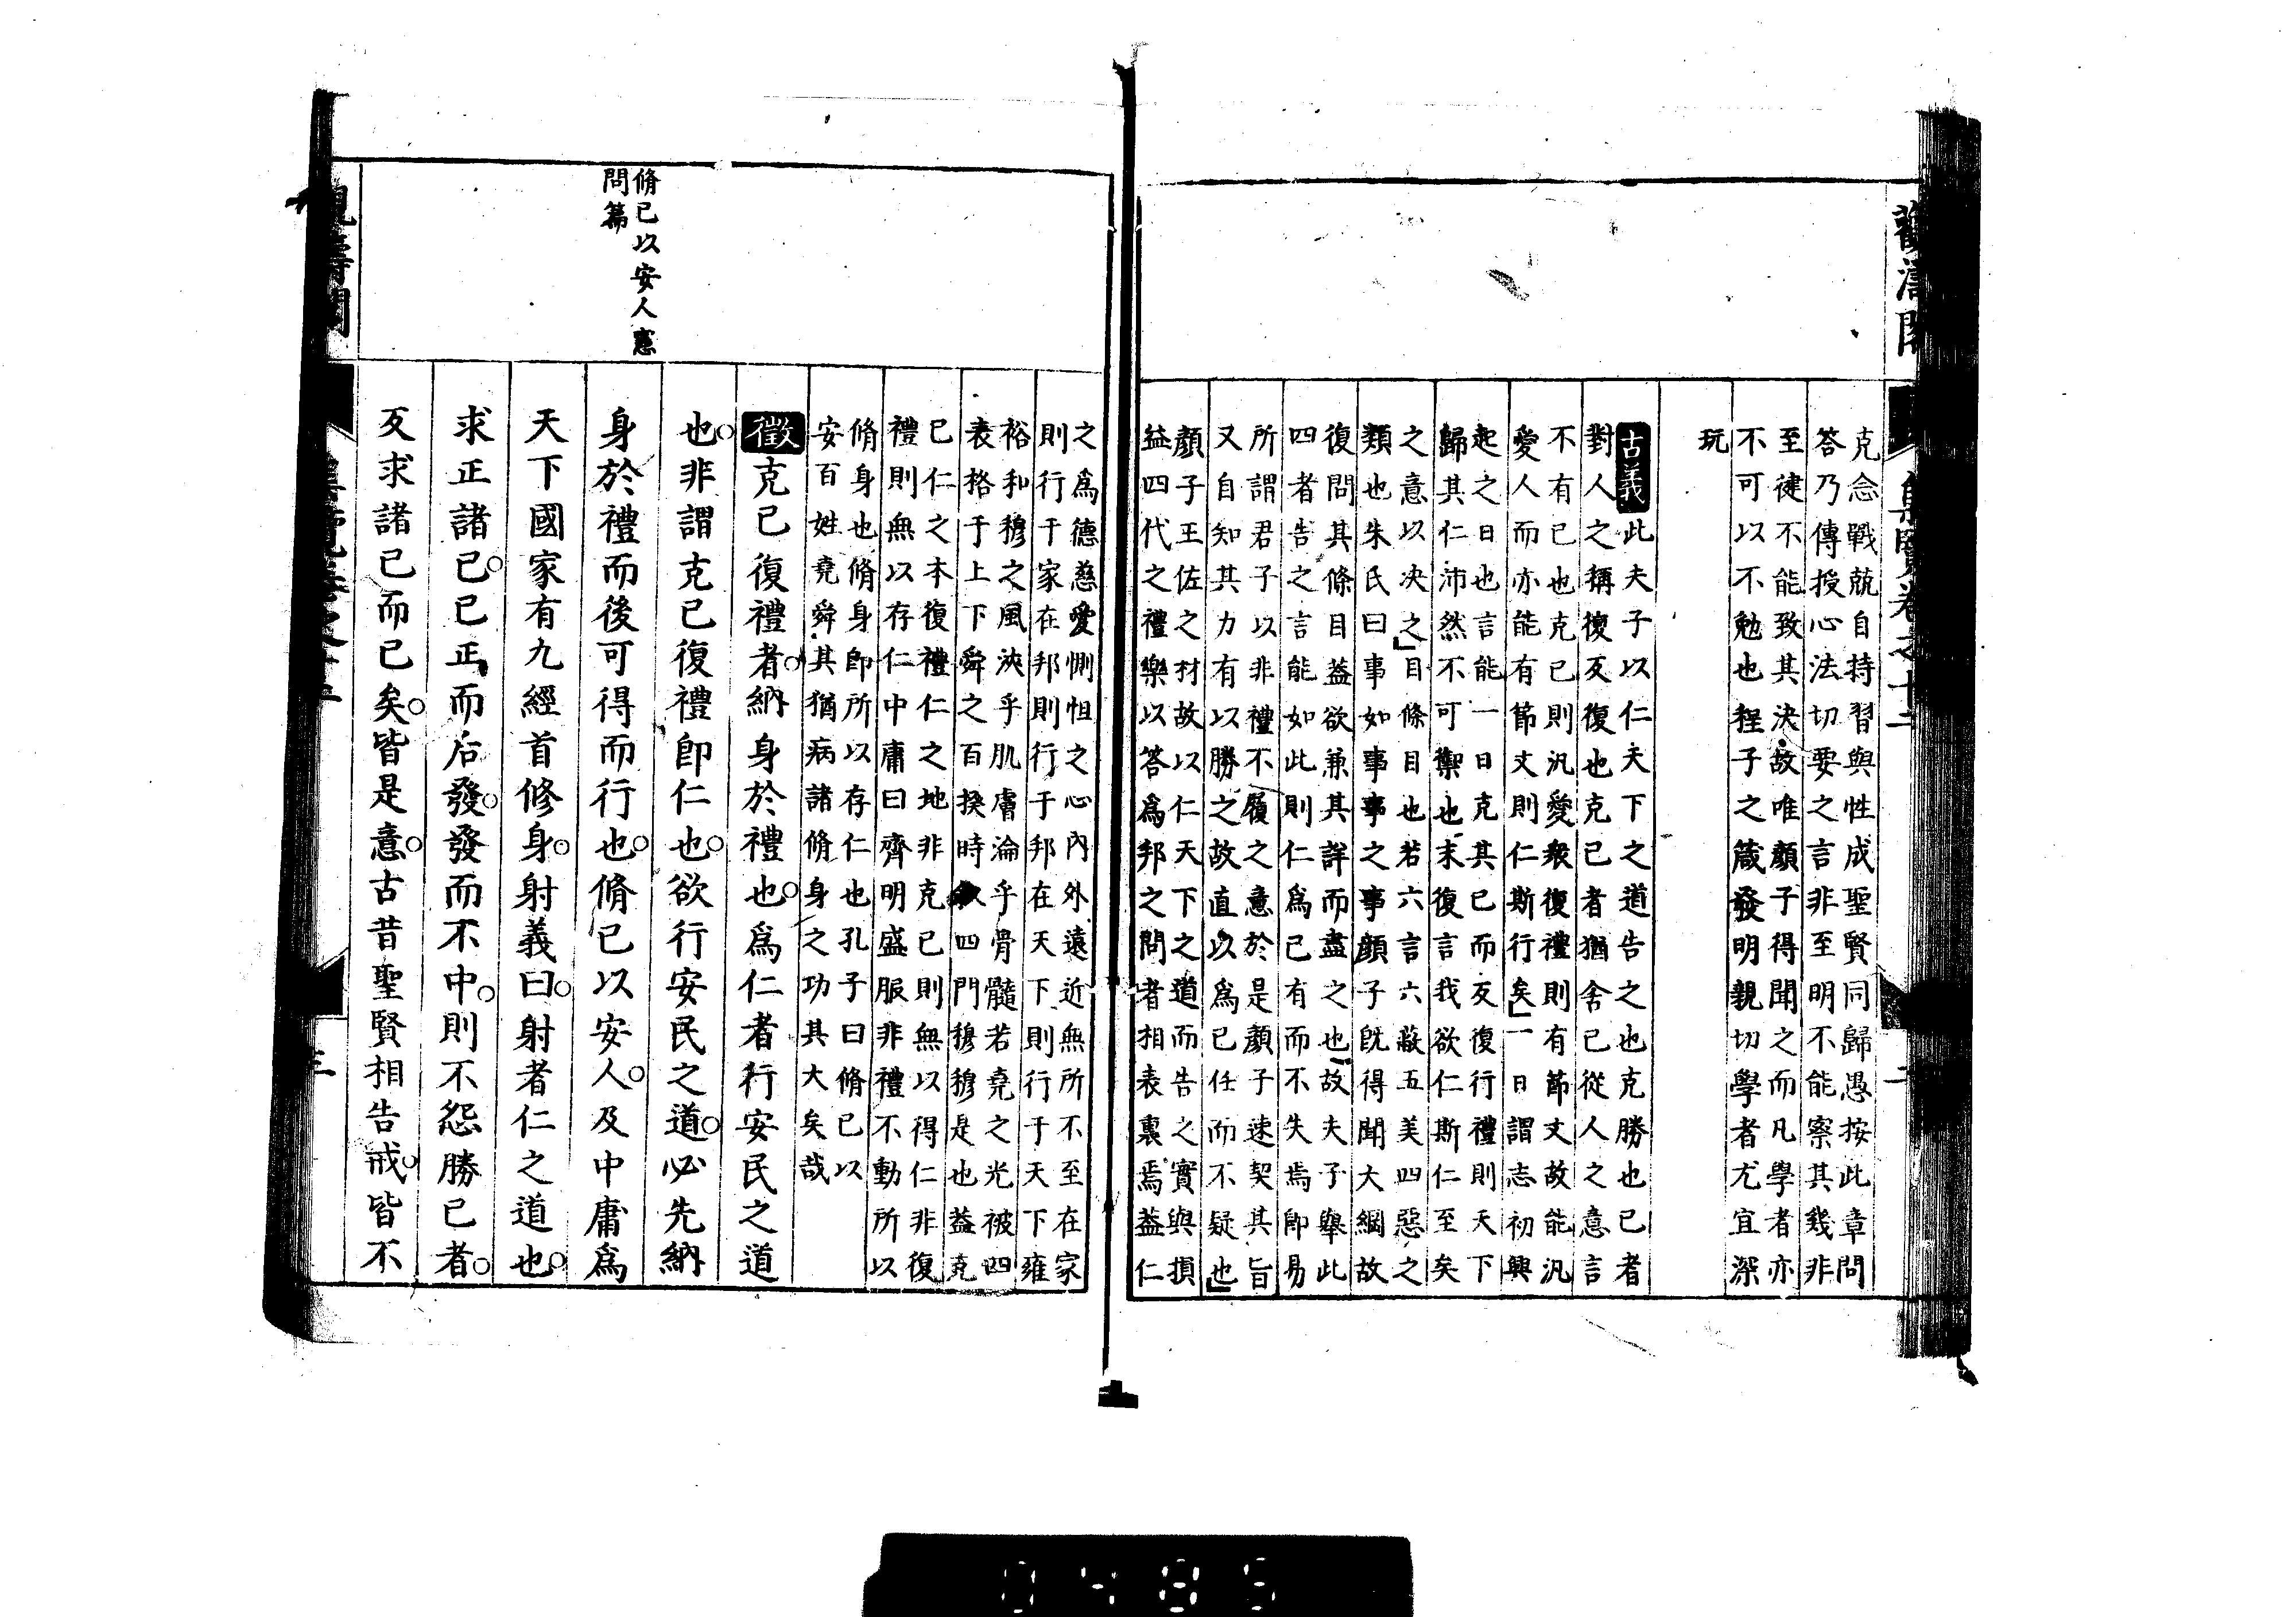 克念戰兢自持習與性成聖賢同歸愚按此章問
答乃傳授心法切要之言非至明不能察其幾非
至健不能致其決故唯顏子得聞之而凡學者亦
不可以不勉也程子之箴發明親切學者尤宜深
玩
古義此夫子以仁天下之道告之也克勝也已者
對人之稱復反復也克已者猶舍已從人之意言
不有已也克已則汎愛衆復禮則有節文故能汎
愛人而亦能有節文則仁斯行矣一日謂志初興
起之日也言能一日克其已而反復行禮則天下
歸其仁沛然不可禦也末復言我欲仁斯仁至矣
之意以决之目條目也若六言六蔽五美四惡之
類也朱氏曰事如事事之事顏子旣得聞大綱故
復問其條目益欲兼其詳而盡之也故夫子舉此
四者告之言能如此則仁爲已有而不失焉卽易
所謂君子以非禮不履之意於是顏子速契其旨
又自知其力有以勝之故直以爲已任而不疑也
顏子王佐之材故以仁天下之道而告之實與損
益四代之禮樂以答爲邦之問者相表裏焉蓋仁
之爲德慈愛惻怛之心內外遠近無所不至在家
則行于家在邦則行于邦在天下則行于天下雍
裕和穆之風浹乎肌膚淪乎骨髓若堯之光被四
表格于上下舜之百揆時敘四門穆穆是也蓋克
已仁之本復禮仁之地非克已則無以得仁非復
禮則無以存仁中庸曰齊明盛服非禮不動所以
脩身也脩身卽所以存仁也孔子曰脩已以
安百姓堯舜其猶病諸脩身之功其大矣哉
徵克已復禮者納身於禮也爲仁者行安民之道
也非謂克已復禮卽仁也欲行安民之道必先納
身於禮而後可得而行也脩已以安人及中庸爲
脩已以安人憲
問篇
天下國家有九經首修身射義曰射者仁之道也
求正諸已已正而后發發而不中則不怨勝已者
反求諸已而已矣皆是意古昔聖賢相告戒皆不